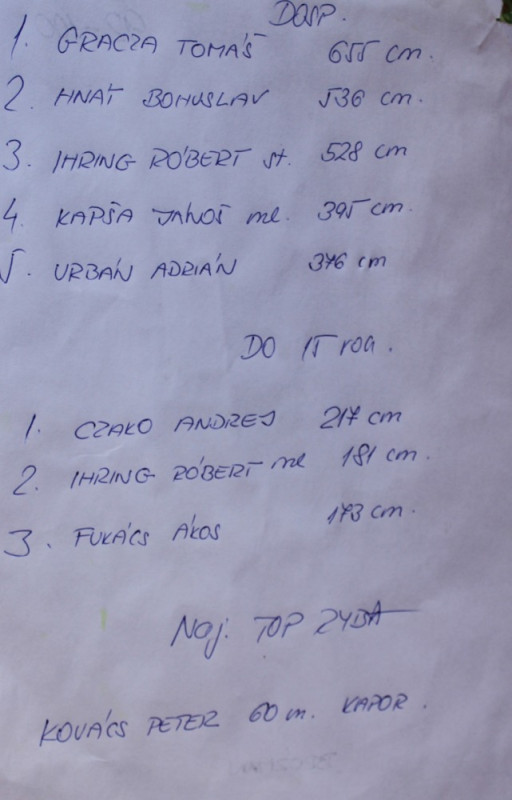 DOSP.
1. GRACZA TOMÁŠ 655 cm.
2. HNÁT BOHUSLAV 536 cm.
3. IHRING RÓBERT st. 528 cm
4. KAPŠA JÁNOŠ ml. 395 cm.
5. URBÁN ADRIÁN 376 cm
DO 15 rok.
1. CZAKO ANDREJ 217 cm
2. IHRING RÓBERT ml 181 cm.
3. FUKÁCS ÁKOS 173 cm.
Naj. TOP RYBA
KOVÁCS PETER 60 m. KAPOR.